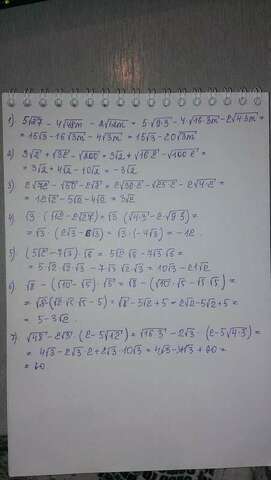 1) 5√27 - 4√48m - 2√12m = 5·√9·3 - 4·√16·3m - 2√4·3m =
= 15√3 - 16√3m - 4√3m = 15√3 - 20√3m
2) 3√2 + √32 - √200 = 3√2 + √16·2 - √100·2 =
= 3√2 + 4√2 - 10√2 = -3√2
3) 2√72 - √50 - 2√8 = 2√36·2 - √25·2 - 2√4·2 =
= 12√2 - 5√2 - 4√2 = 3√2
4) √3·(√12 - 2√27) = √3·(√4·3 - 2·√9·3) =
= √3·(2√3 - 6√3) = √3·(-4√3) = -12
5) (5√2 - 7√3)·√6 = 5√2·√6 - 7√3·√6 =
= 5·√2·√2·√3 - 7·√3·√2·√3 = 10√3 - 21√2
6) √8 - (√10 - √5)·√5 = √8 - (√10·√5 - √5·√5) =
5 - 3√2.
7) √48 - 2√3·(2 - 5√12) = √16·3 - 2√3·(2 - 5√4·3) =
= 4√3 - 2√3·2 + 2√3·10√3 = 4√3 - 4√3 + 60 =
= 60